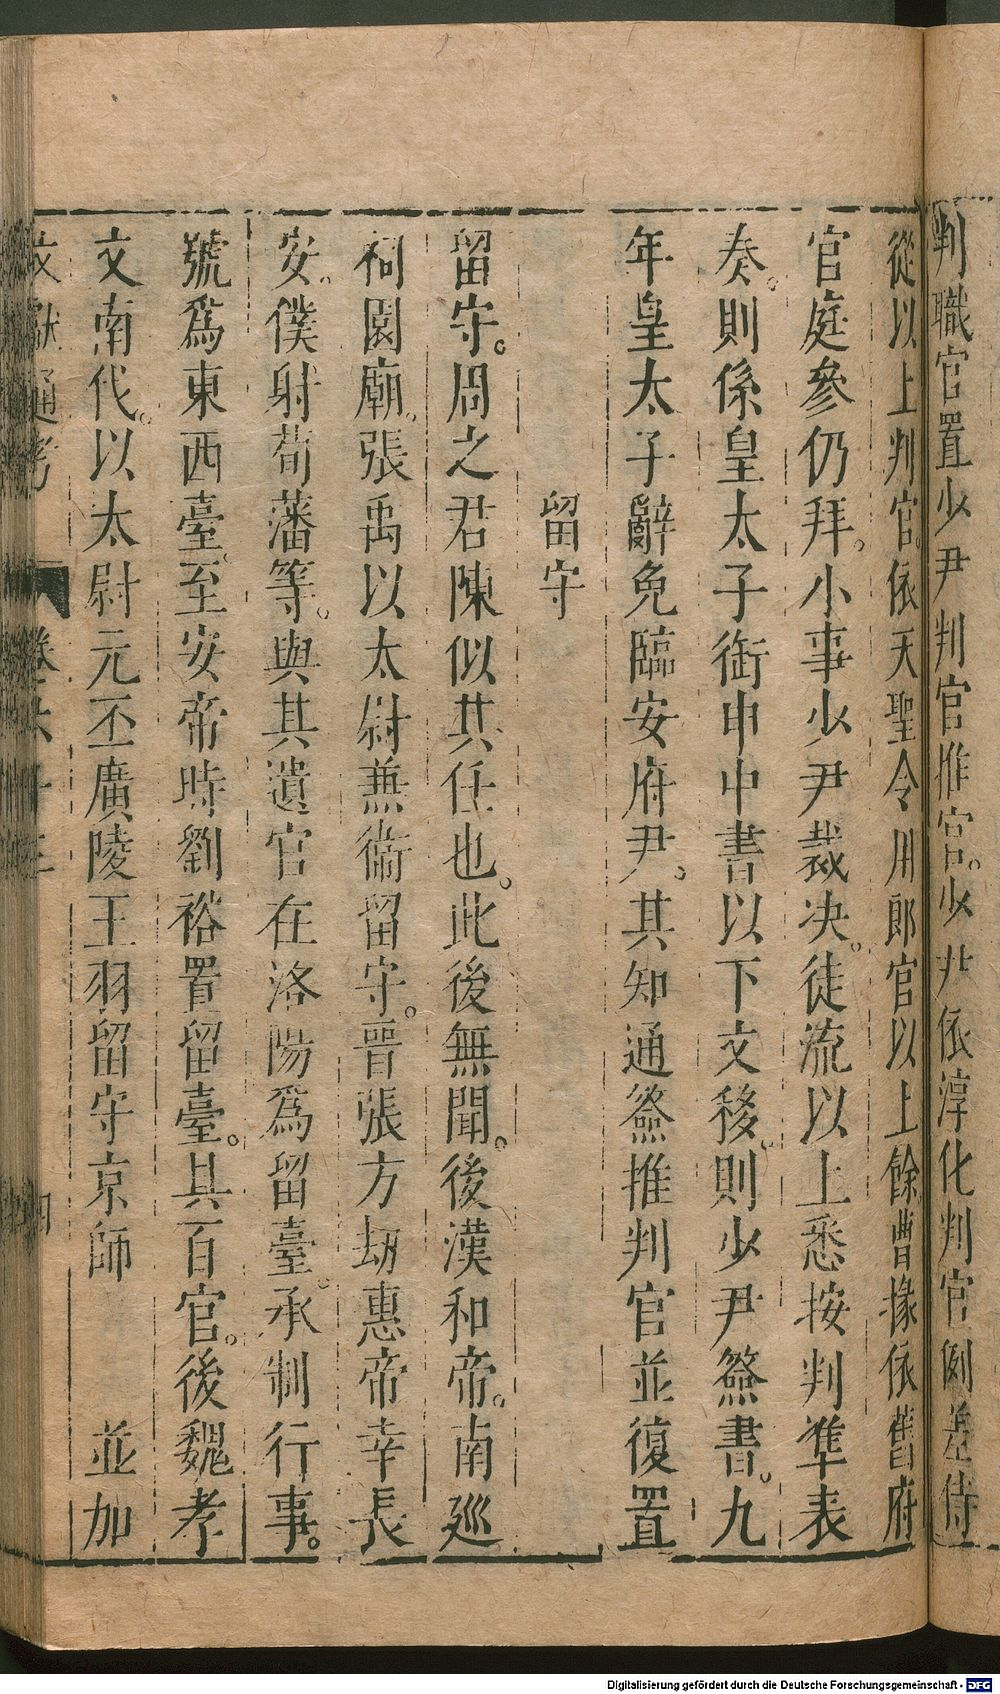 判職官置少尹判官推官。少尹依淳化判官例差侍
從以上判官。依天聖令用郎官以上餘曹掾依舊府
官庭參仍拜。小事少尹裁决。徒流以上悉按判準表
奏。則係皇太子銜申中書以下文移。則少尹簽書。九
年皇太子辭免臨安府尹。其知通簽推判官並復置
留守
留守。周之君陳似其任也。此後無聞。後漢和帝。南巡
祠園廟。張禹以太尉兼衞留守。晉張方劫惠帝幸長
安。僕射荀藩等。與其遺官在洛陽爲留臺。承制行事。
號爲東西臺。至安帝時劉裕置留臺。具百官。後魏孝
文南代。以太尉元丕廣陵王羽留守京師 並加
文獻通考 卷六十三 四
Digitalisierung gefördert durch die Deutsche Forschungsgemeinschaft - DFG